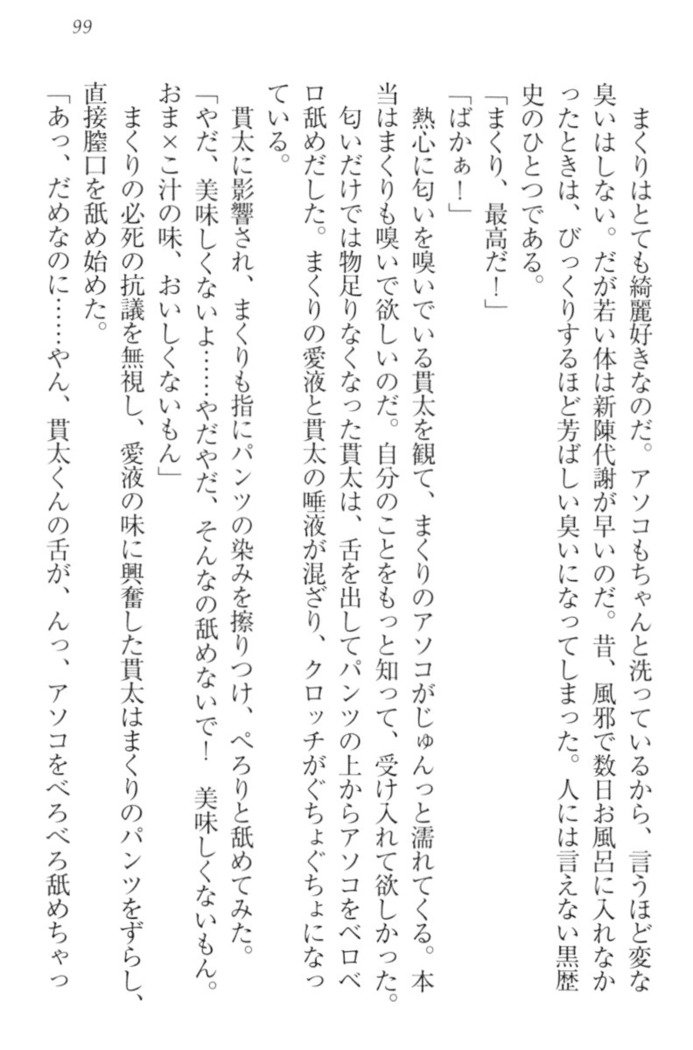 99
まくりはとても綺麗好きなのだ。アソコもちゃんと洗っているから、言うほど変な
臭いはしない。だが若い体は新陳代謝が早いのだ。昔、風邪で数日お風呂に入れなか
ったときは、びっくりするほど芳ばしい臭いになってしまった。人には言えない黒歴
史のひとつである。
「まくり、最高だ!」
「ばかぁ!」
熱心に匂いを嗅いでいる貫太を観て、まくりのアソコがじゅんっと濡れてくる。本
当はまくりも嗅いで欲しいのだ。自分のことをもっと知って、受け入れて欲しかった。
匂いだけでは物足りなくなった貫太は、舌を出してパンツの上からアソコをベロベ
ロ舐めだした。まくりの愛液と貫太の唾液が混ざり、クロッチがぐちょぐちょになっ
ている。
貫太に影響され、まくりも指にパンツの染みを擦りつけ、ぺろりと舐めてみた。
「やだ、美味しくないよ……やだやだ、そんなの舐めないで! 美味しくないもん。
おま×こ汁の味、おいしくないもん」
まくりの必死の抗議を無視し、愛液の味に興奮した貫太はまくりのパンツをずらし、
直接膣口を舐め始めた。
「あっ、だめなのに……やん、貫太くんの舌が、んっ、アソコをべろべろ舐めちゃっ